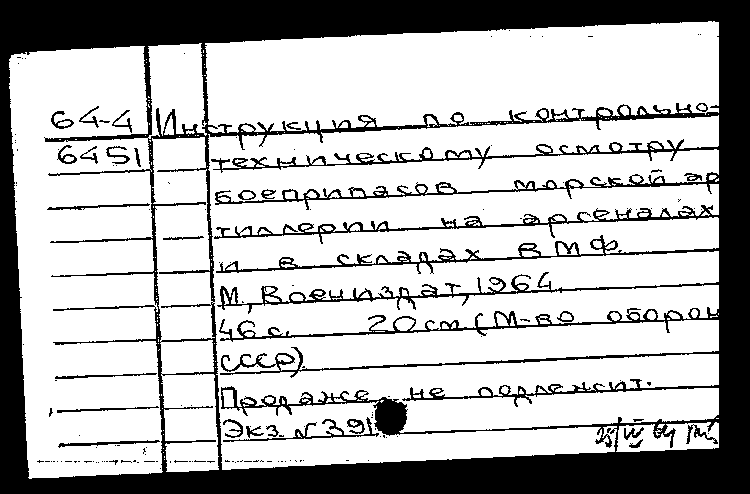 64-4 Инструкция по контрольно-
6451 техническому осмотру
боеприпасов морской ар
тиллерии на арсеналах
и в складах ВМФ.
М, Воениздат, 1964.
46 с. 20 см (М-во оборон
СССР)
Продаже не подлежит.
Экз. N 391